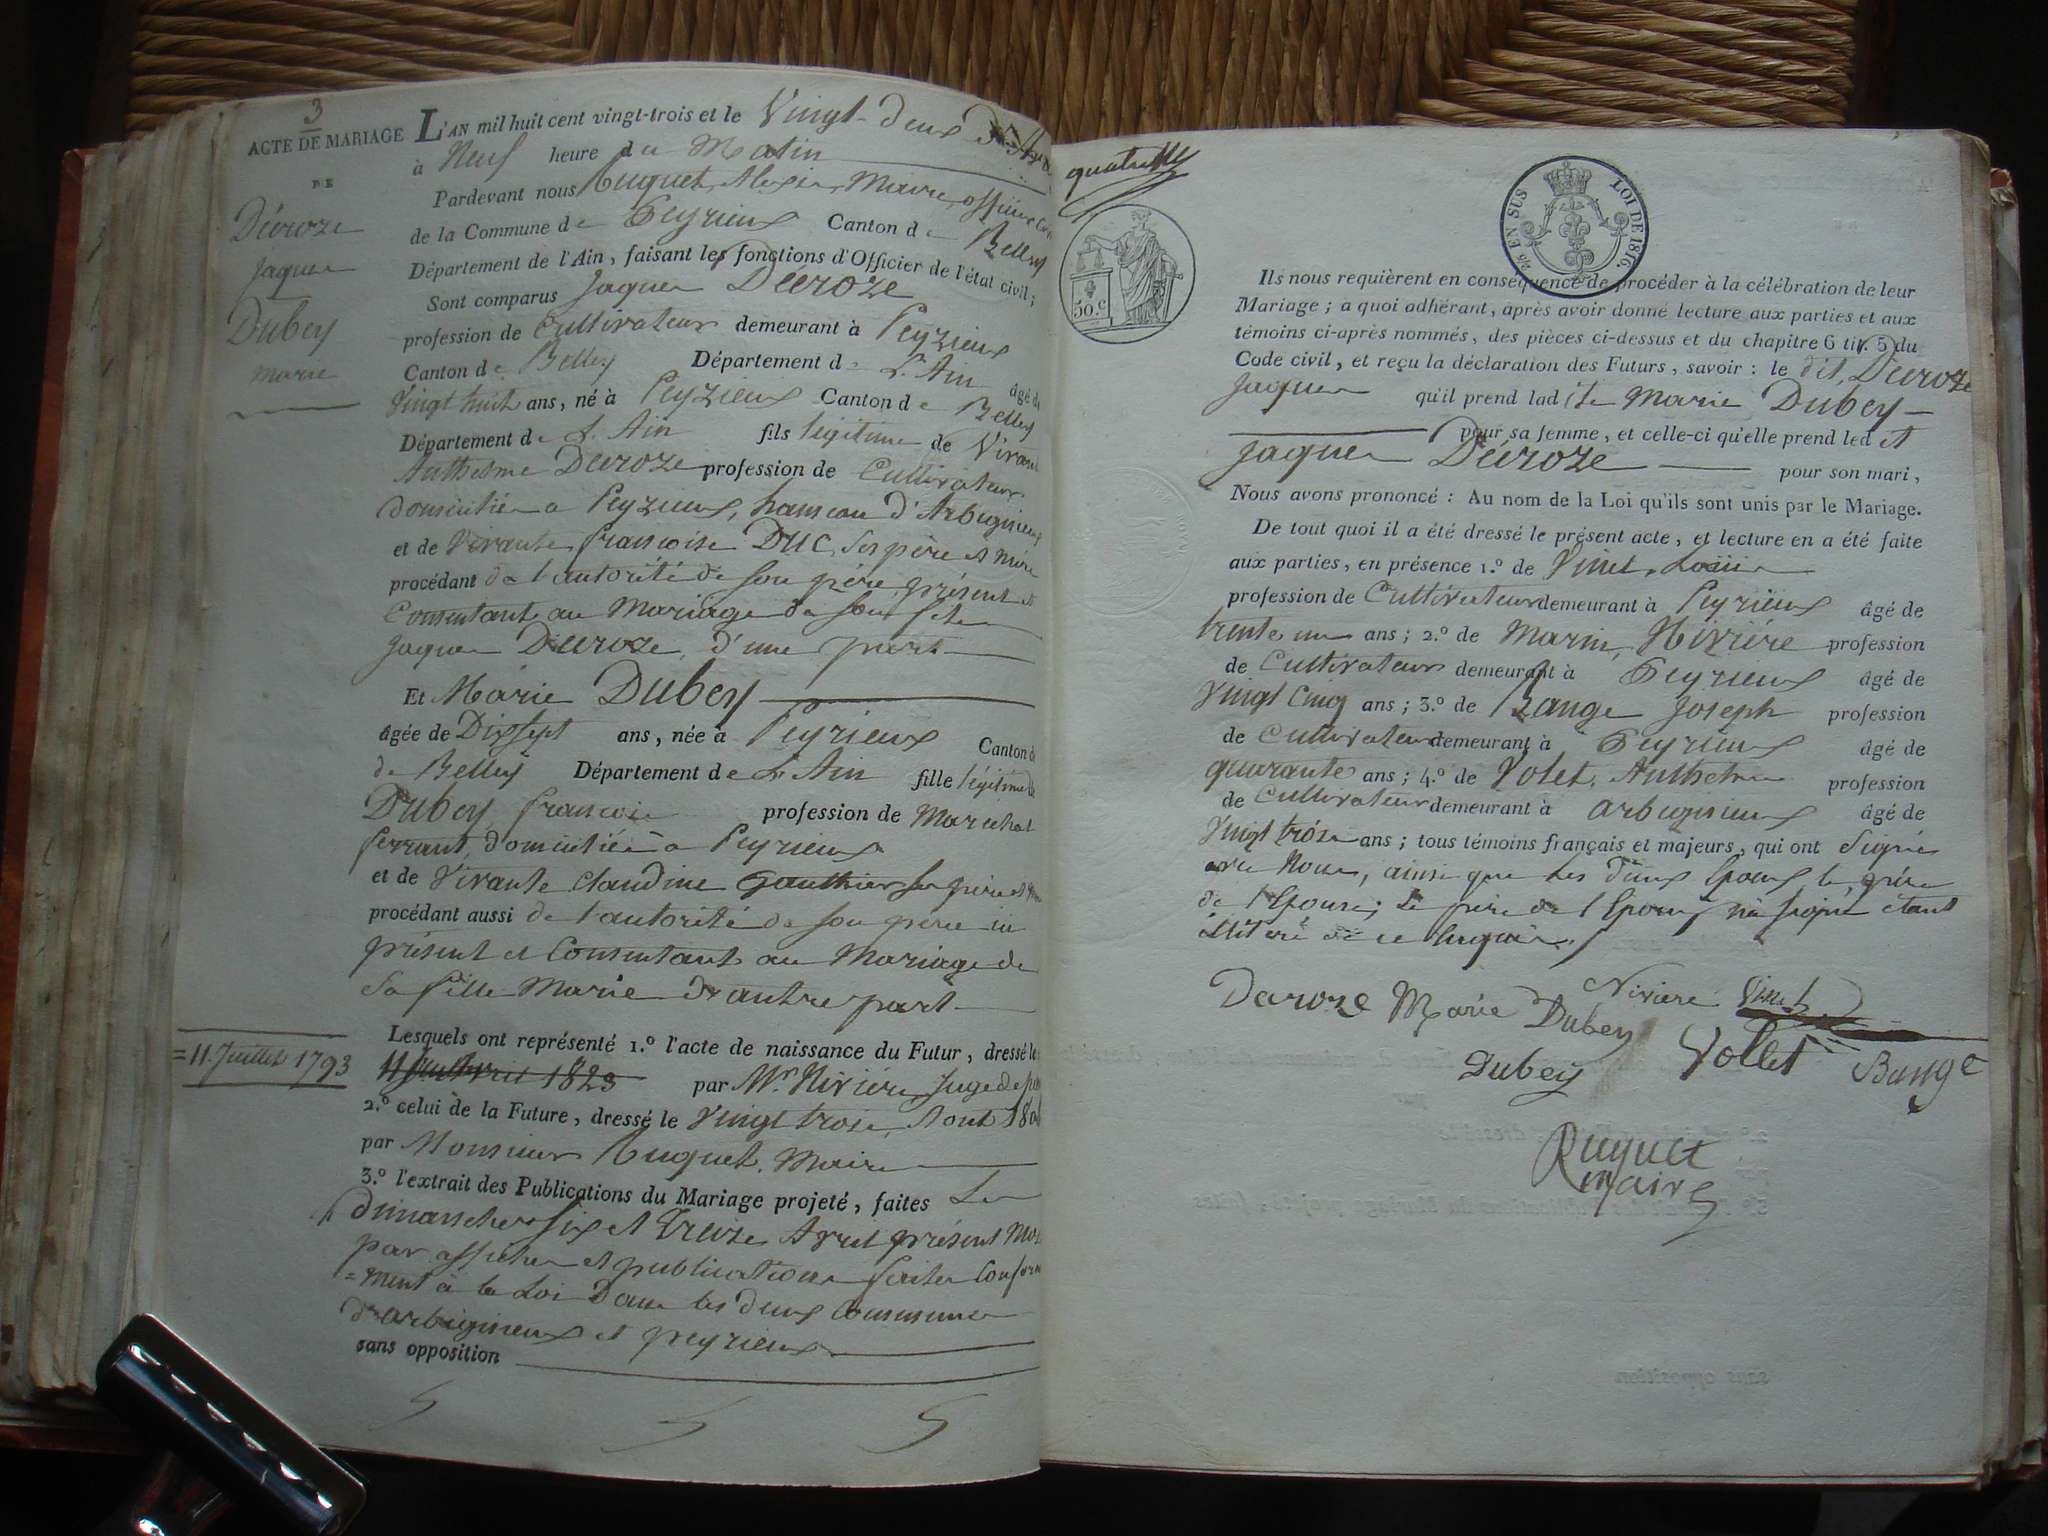 3
ACTE DE MARIAGE
DE
Décroze
Jaques
Dubey
marie
L'AN mil huit cent vingt-trois et le Vingt-deux
à Neuf heure du Matin
Pardevant nous Ruguet, Alexis, Maire, officier
de la Commune de Peyrieux Canton de Belley
Département de l'Ain, faisant les fonctions d'Officier de l'état civil;
Sont comparus Jaques Décroze
profession de Cultivateur demeurant à Peyzieux
Canton de Belley Département de L'Ain âgé de
Vingt huit ans, né à Peyzieux Canton de Belley
Département de L'Ain fils légitime de Vivant
Anthelme Décroze profession de Cultivateur
domicilié a Peyzieux, hameau d'Arbignieux
et de Vivante françoise DUC, ses père et mère
procédant de l'autorité de son père, présent et
Consentant au Mariage de son fils
Jaques Décroze, d'une part
Et Marie Dubey
âgée de Dixsept ans, née à Peyrieux Canton d
de Belley Département de L'Ain fille légitime de
Dubey, françois profession de Maréchal
ferrant, domicilié a Peyrieux
et de Vivante Claudine Gauthier ses père et
procédant aussi de l'autorité de son père ici
présent et Consentant au Mariage de
Sa fille Marie d'autre part
Lesquels ont représenté 1.º l'acte de naissance du Futur, dressé le
= 11. Juillet 1793
1823 par Mr Nivière, Juge de paix
2.º celui de la Future, dressé le Vingt trois, Aout 180
par Monsieur Ruguet, Maire
3.º l'extrait des Publications du Mariage projeté, faites Les
dimanches six et treize Avril présent Mois
par affiches et publications faites Conformé
=ment à la Loi Dans les deux Communes
d'arbignieux et peyrieux
sans opposition
EN SUS
LOI DE 1816.
50.c
Ils nous requièrent en conséquence de procéder à la célébration de leur
Mariage; a quoi adhérant, après avoir donné lecture aux parties et aux
témoins ci-après nommés, des pièces ci-dessus et du chapitre 6 tit. 5 du
Code civil, et reçu la déclaration des Futurs, savoir: le dit, Décroze
Jaques qu'il prend ladite Marie Dubey
pour sa femme, et celle-ci qu'elle prend ledit
Jaques Décroze pour son mari,
Nous avons prononcé: Au nom de la Loi qu'ils sont unis par le Mariage.
De tout quoi il a été dressé le présent acte, et lecture en a été faite
aux parties, en présence 1.º de Vinet, Louis
profession de Cultivateur demeurant à Peyrieux âgé de
trente un ans; 2.º de Marin, Nivière profession
de Cultivateur demeurant à Peyrieux âgé de
Vingt cinq ans; 3.º de Bange Joseph profession
de Cultivateur demeurant à Peyrieux âgé de
quarante ans; 4.º de Volet, Anthelme profession
de Cultivateur demeurant à arbignieux âgé de
Vingt trois ans; tous témoins français et majeurs, qui ont Signé
avec Nous, ainsi que les deux Epoux le père
de l'Epouse; Le père de l'Epoux n'a signé étant
illiteré de ce Enquis
Decroze Marie Dubey Niviere Vinet
Dubey Vollet Bange
Ruguet
maire